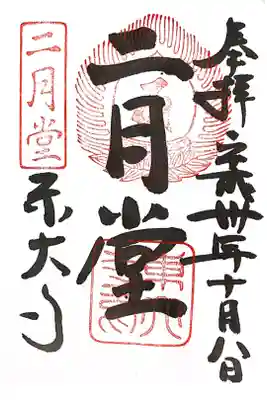 奉拝 平成卅年十月八日
二月堂
二月堂
東大寺